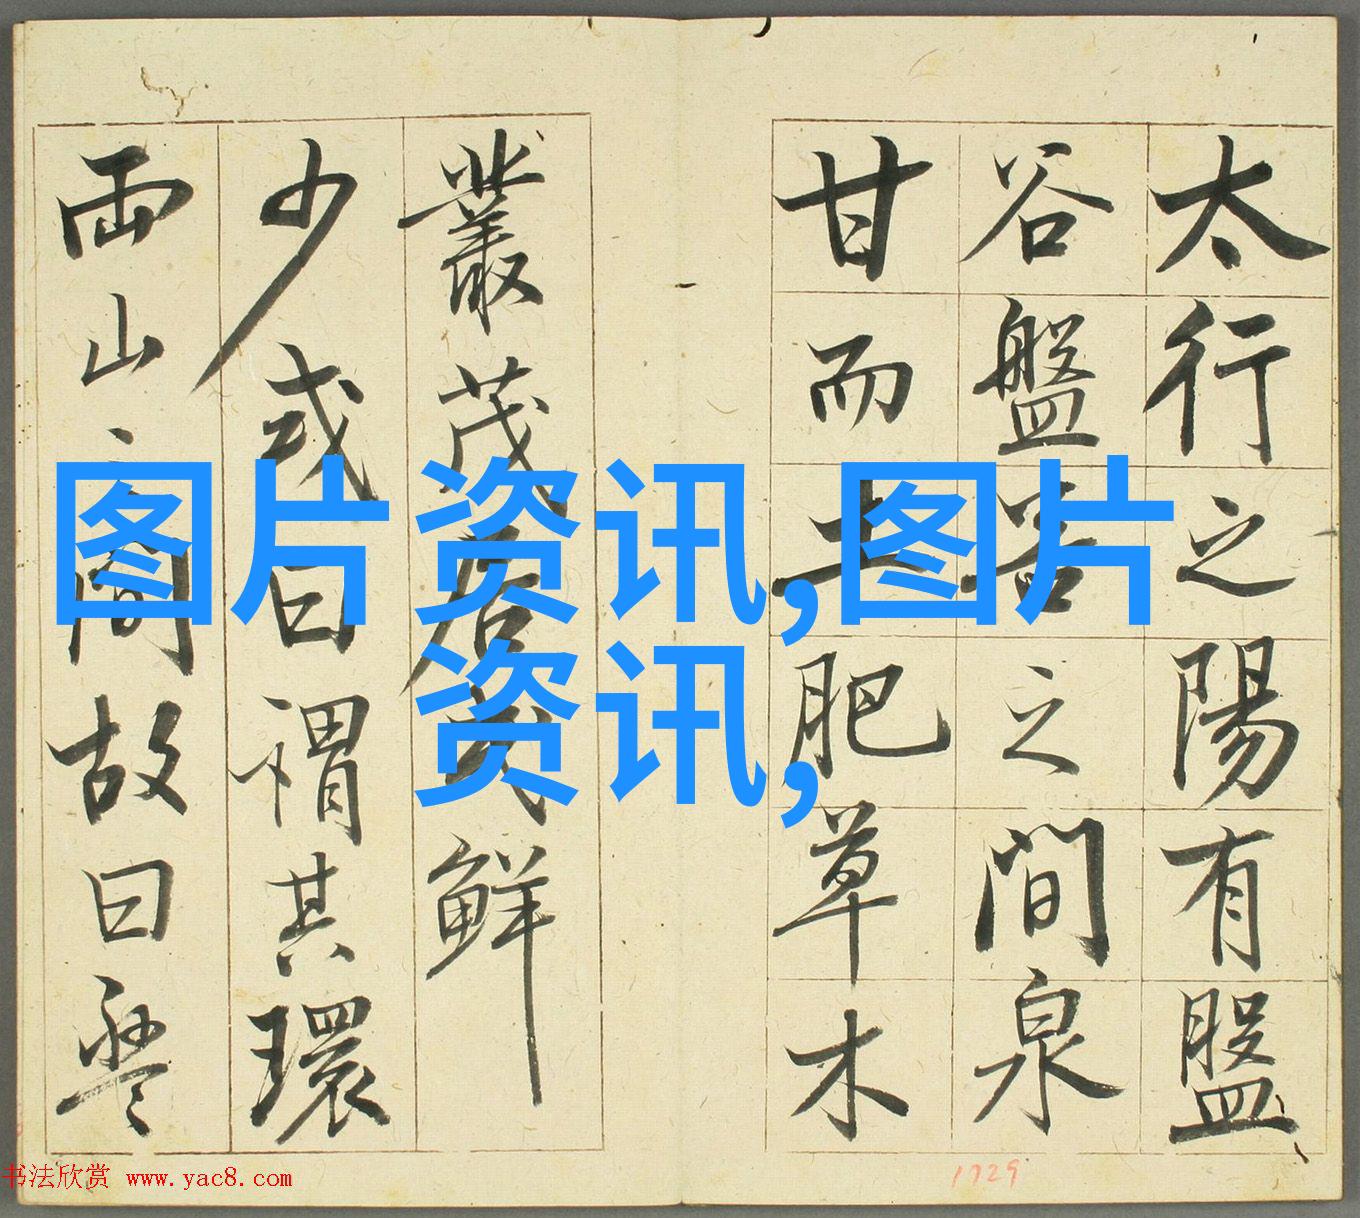 太行之陽有盤
谷盤谷之間泉
甘而土肥草木
叢茂居民鮮
少或曰謂其環
兩山之間故曰盤
图片资讯,图片
资讯,
书法欣赏 www.yac8.com
1729